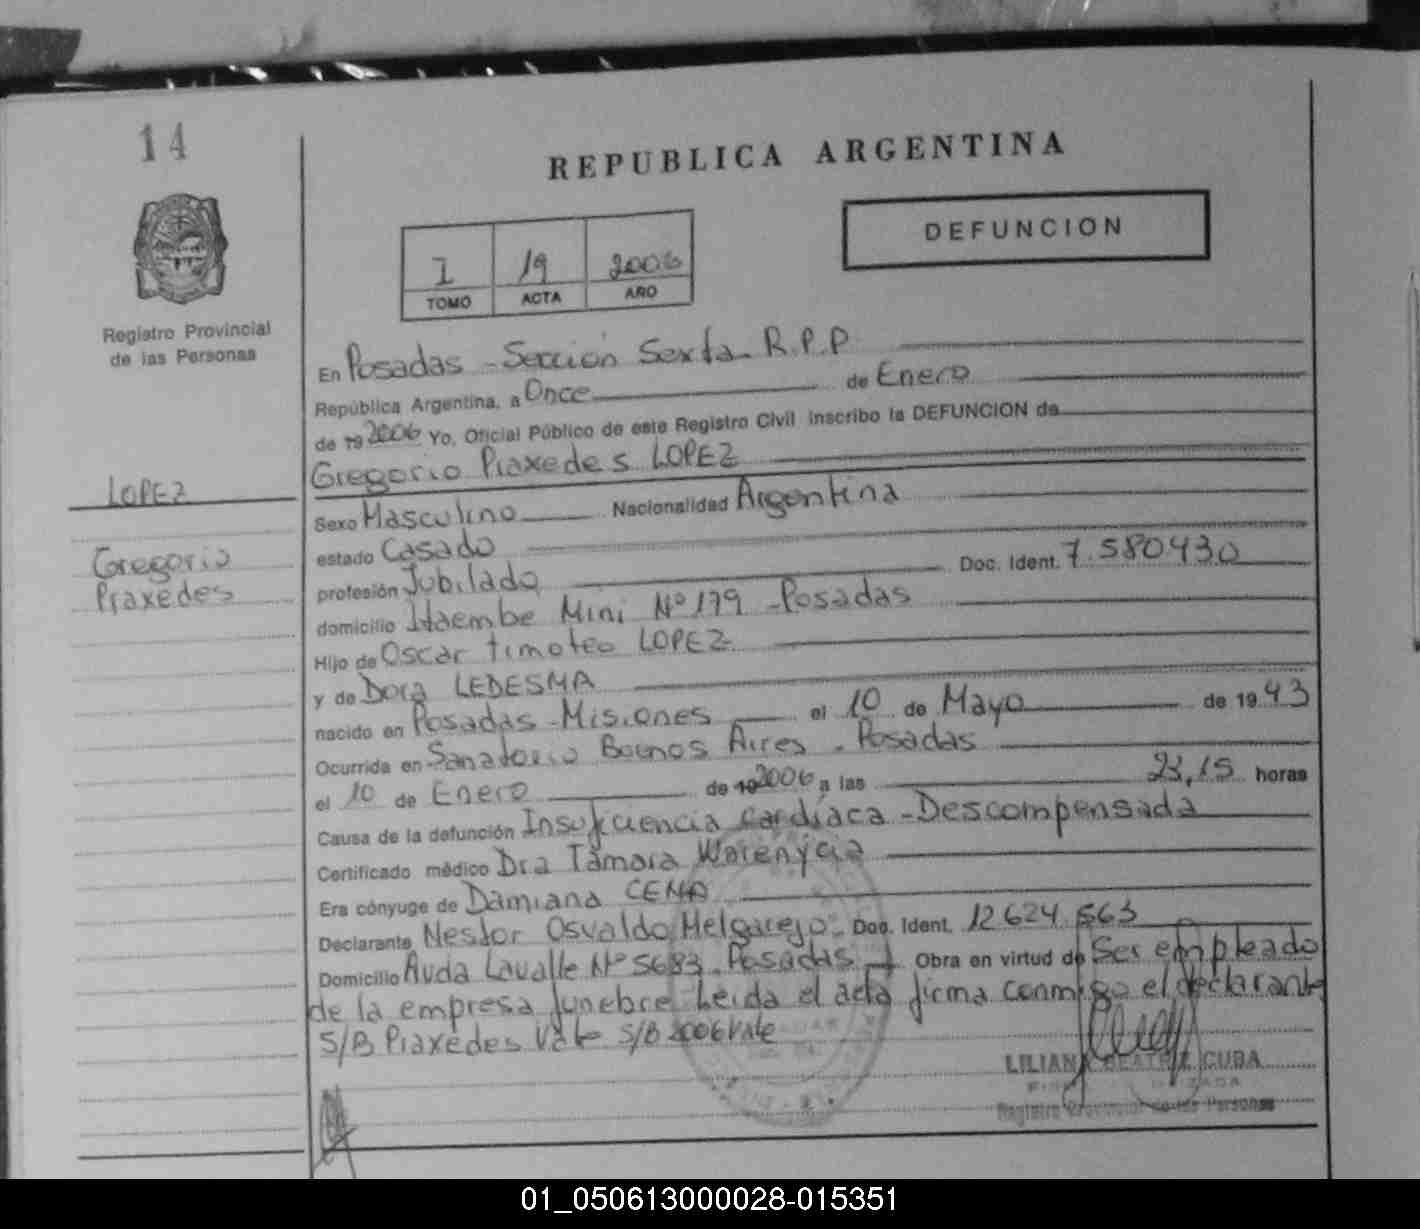 14
REPUBLICA ARGENTINA
DEFUNCION
I 19 2006
TOMO ACTA AÑO
Registro Provincial
de las Personas
En Posadas - Sección Sexta R.P.P
República Argentina, a Once de Enero
de 19 2006 Yo, Oficial Público de este Registro Civil inscribo la DEFUNCION de
Gregorio Piaxedes LOPEZ
LOPEZ
Gregorio
Piaxedes
Sexo Masculino Nacionalidad Argentina
estado Casado
profesión Jubilado Doc. Ident. 7.580430
domicilio Itaembe Mini Nº 179 - Posadas
Hijo de Oscar timoteo LOPEZ
y de Dora LEDESMA
nacido en Posadas - Misiones el 10 de Mayo de 19 43
Ocurrida en Sanatorio Buenos Aires - Posadas
el 10 de Enero de 19 2006 a las 23,15 horas
Causa de la defunción Insuficiencia cardíaca - Descompensada
Certificado médico Dra Tamara
Era cónyuge de Damiana CENA
Declarante Nestor Osvaldo Melgarejo - Doc. Ident. 12624.563
Domicilio Avda Lavalle Nº 5683 - Posadas Obra en virtud de Ser empleado
de la empresa funebre Leida el acta firma conmigo el declarante
S/B Piaxedes Vale S/B 2006 Vale
LILIANA BEATRIZ CUBA
Registro Provincial de las Personas
01_050613000028-015351